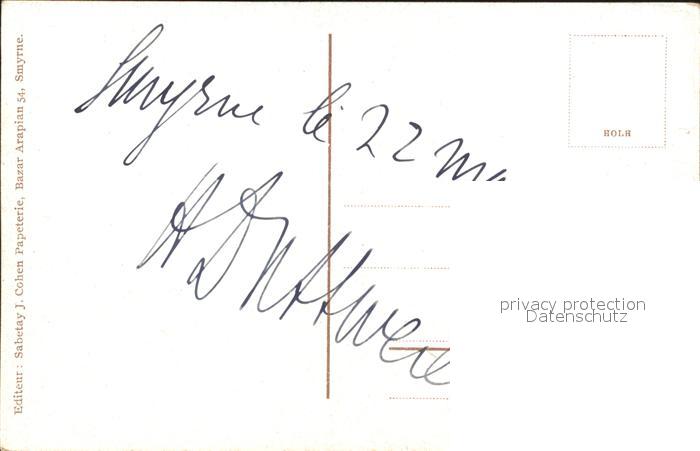 Editeur: Sabetay J. Cohen Papeterie, Bazar Arapian 54, Smyrne.
Smyrne le 22
HOLH
privacy protection
Datenschutz